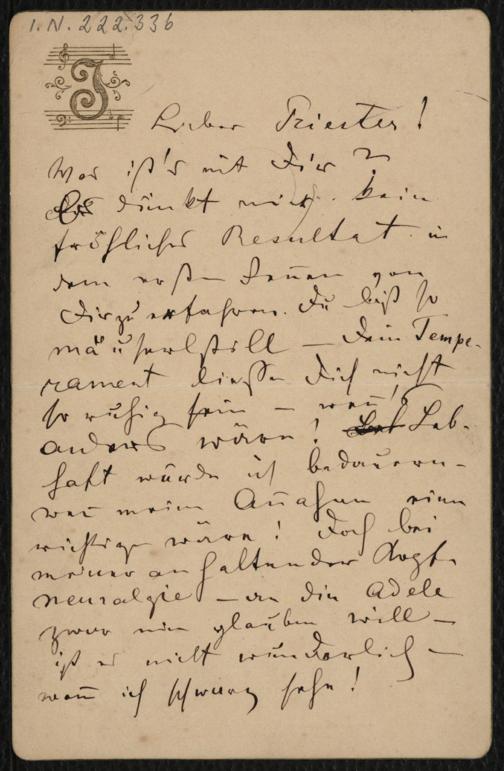 I.N. 222.336
J
Lieber Priester!
Was ist's mit Dir?
Es dünkt mich kein
fröhliches Resultat in
dem ersten Sennen von
Dir zu erfahren. Du bist so
mäuserlstill – Dein Tempe-
rament liesse Dich nicht
so ruhig sein – wenn's
anders wäre! Leb-
haft würde ich bedauern –
wenn meine Annahme eine
richtige wäre! Doch bei
meiner anhaltenden Kopf-
neuralgie – an die Adele
zwar nie glauben will –
ist es nicht wunderlich –
wenn ich schwarz sehe!